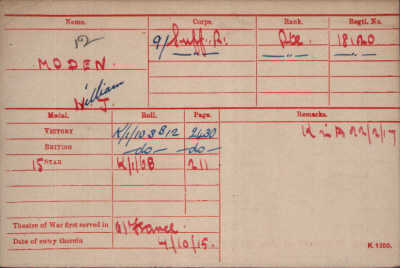 Name. Corps. Rank. Regtl. No.
12
9/Suff. R. Pte 18120
MODEN. " "
William
J.
Medal. Roll. Page. Remarks.
VICTORY K/1/103B12 2430 K in A 22/2/17
BRITISH -do- -do-
15 STAR K/1/6B 211
Theatre of War first served in (1) France.
Date of entry therein 7/10/15.
K. 1380.